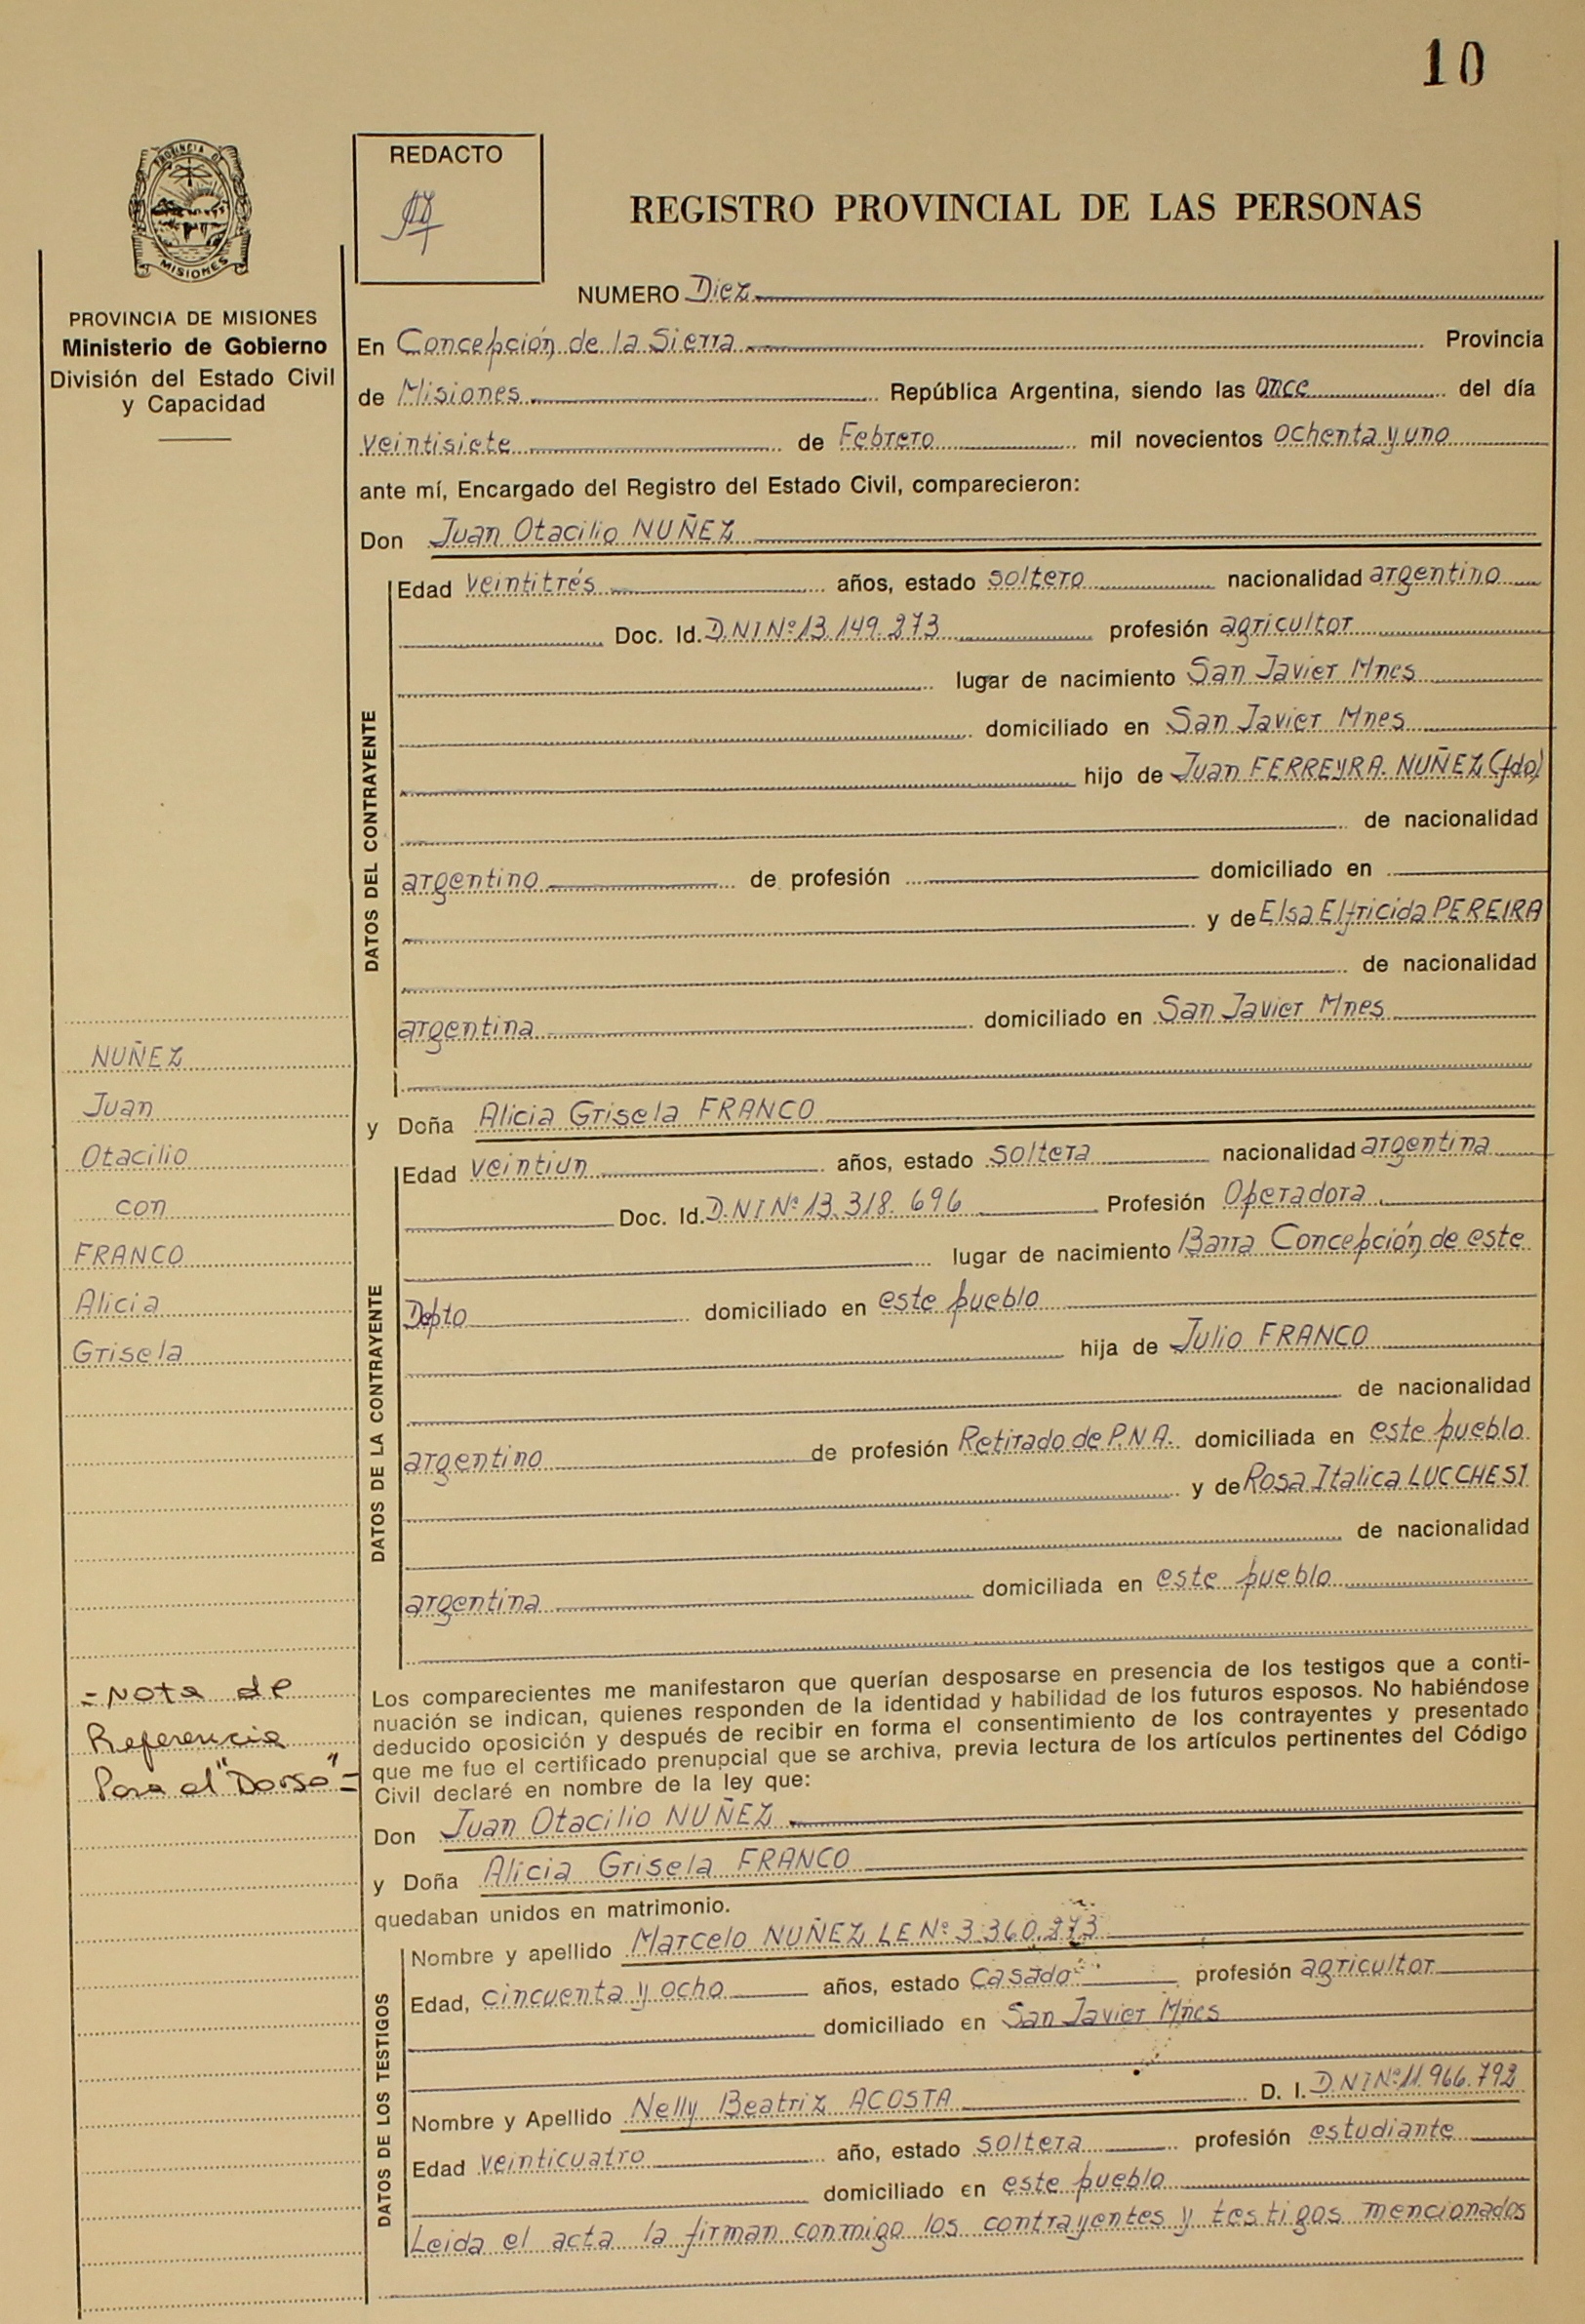 10
PROVINCIA DE
MISIONES
REDACTO
REGISTRO PROVINCIAL DE LAS PERSONAS
PROVINCIA DE MISIONES
Ministerio de Gobierno
División del Estado Civil
y Capacidad
NUMERO Diez
En Concepción de la Sierra Provincia
de Misiones República Argentina, siendo las once del día
veintisiete de Febrero mil novecientos ochenta y uno
ante mí, Encargado del Registro del Estado Civil, comparecieron:
Don Juan Otacilio NUÑEZ
DATOS DEL CONTRAYENTE
Edad veintitrés años, estado soltero nacionalidad argentino
Doc. Id. D.N.I Nº 13.149.273 profesión agricultor
lugar de nacimiento San Javier Mnes
domiciliado en San Javier Mnes
hijo de Juan FERREYRA NUÑEZ (fdo)
de nacionalidad
argentino de profesión domiciliado en
y de Elsa Elfricida PEREIRA
de nacionalidad
argentina domiciliado en San Javier Mnes
NUÑEZ
Juan
Otacilio
con
FRANCO
Alicia
Grisela
y Doña Alicia Grisela FRANCO
DATOS DE LA CONTRAYENTE
Edad veintiun años, estado soltera nacionalidad argentina
Doc. Id. D.N.I Nº 13.318.696 Profesión Operadora
lugar de nacimiento Barra Concepción de este
Depto domiciliado en este pueblo
hija de Julio FRANCO
de nacionalidad
argentino de profesión Retirado de P.N.A. domiciliada en este pueblo
y de Rosa Italica LUCCHESI
de nacionalidad
argentina domiciliada en este pueblo
=Nota de
Referencia
Para el "Dorso"=
Los comparecientes me manifestaron que querían desposarse en presencia de los testigos que a conti-
nuación se indican, quienes responden de la identidad y habilidad de los futuros esposos. No habiéndose
deducido oposición y después de recibir en forma el consentimiento de los contrayentes y presentado
que me fue el certificado prenupcial que se archiva, previa lectura de los artículos pertinentes del Código
Civil declaré en nombre de la ley que:
Don Juan Otacilio NUÑEZ
y Doña Alicia Grisela FRANCO
quedaban unidos en matrimonio.
DATOS DE LOS TESTIGOS
Nombre y apellido Marcelo NUÑEZ LE Nº 3.360.273
Edad, cincuenta y ocho años, estado Casado profesión agricultor
domiciliado en San Javier Mnes
Nombre y Apellido Nelly Beatriz ACOSTA D. I. D.N.I Nº 11.966.792
Edad veinticuatro año, estado soltera profesión estudiante
domiciliado en este pueblo
Leida el acta la firman conmigo los contrayentes y testigos mencionados